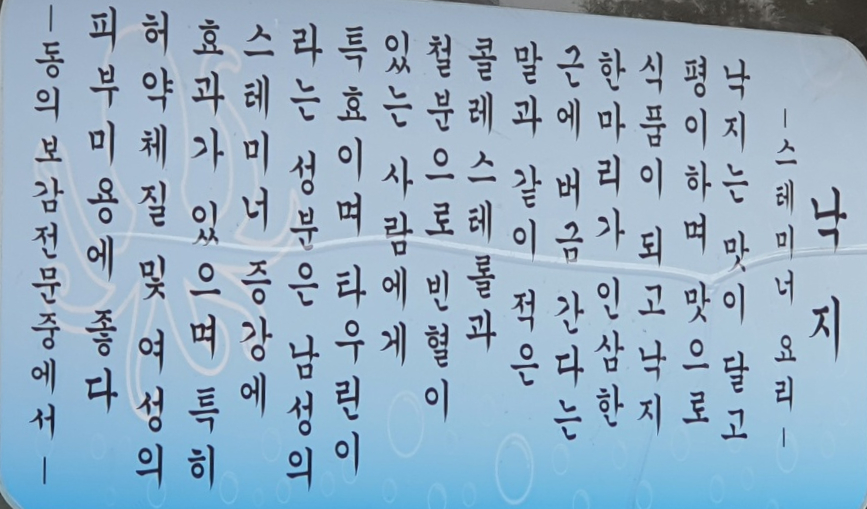 낙 지
-스테미너 요리-
낙지는 맛이 달고
평이하며 맛으로
식품이 되고 낙지
한마리가 인삼한
근에 버금 간다는
말과 같이 적은
콜레스테롤과
철분으로 빈혈이
있는 사람에게
특효이며 타우린이
라는 성분은 남성의
스테미너 증강에
효과가 있으며 특히
허약체질 및 여성의
피부미용에 좋다
-동의보감전문중에서-